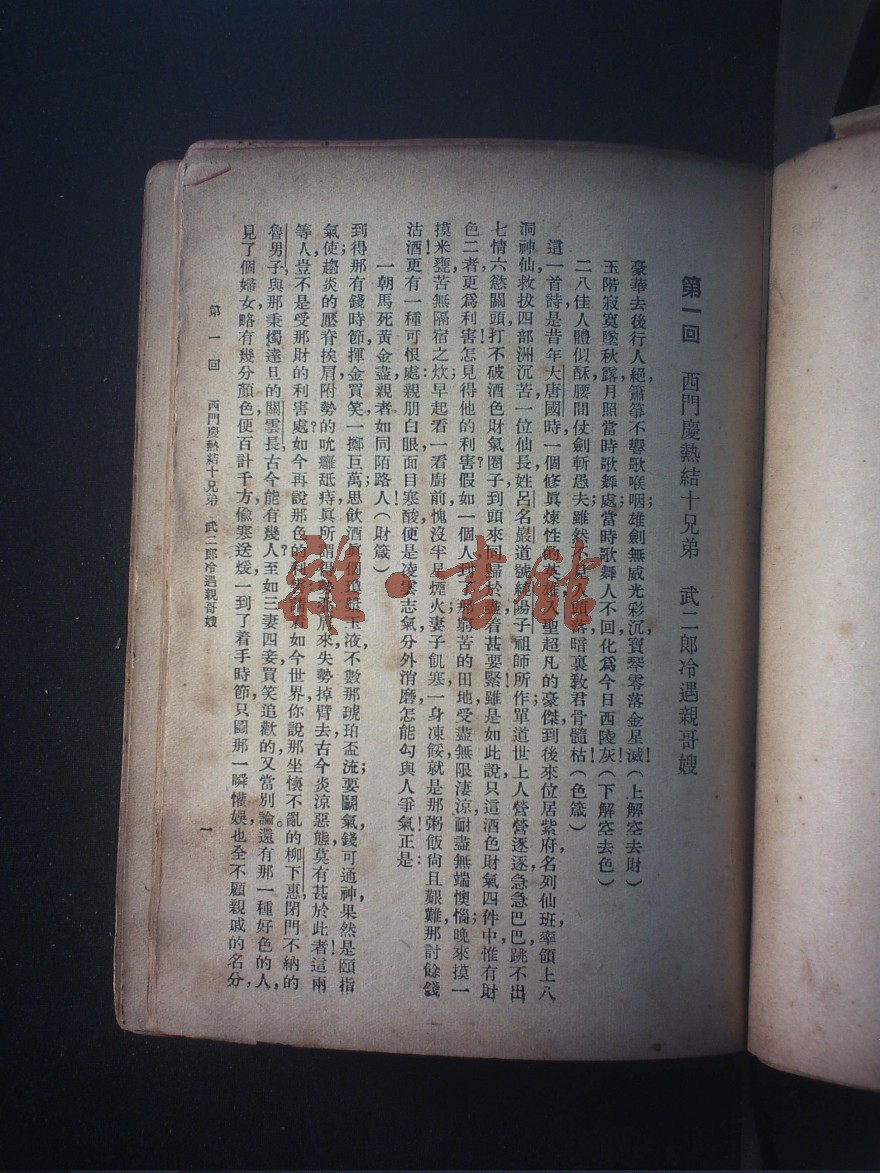 第一回　西門慶熱結十兄弟　武二郎冷遇親哥嫂
豪華去後行人絕，簫箏不響歌喉咽，雄劍無威光彩沉，寶琴零落金星滅！（上解空去財）
玉階寂寞墜秋露，月照當時歌舞處，當時歌舞人不回，化爲今日西陵灰！（下解空去色）
二八佳人體似酥，腰間仗劍斬愚夫；雖然不見人頭落，暗裏敎君骨髓枯！（色箴）
這一首詩，是昔年大唐國時，一個修眞煉性的英雄，入聖超凡的豪傑，到後來位居紫府，名列仙班，率領上八
洞神仙，救拔四部洲沉苦一位仙長，姓呂名巖，道號純陽子祖師所作，單道世上人，營營逐逐，急急巴巴，跳不出
七情六慾關頭，打不破酒色財氣圈子，到頭來同歸於盡，着甚要緊！雖是如此說，只這酒色財氣四件中，惟有財
色二者，更爲利害！怎見得他的利害？假如一個人到了那窮苦的田地，受盡無限淒涼，耐盡無端懊惱；晚來摸一
摸米甕，苦無隔宿之炊，早起看一看廚前，愧沒半星煙火，妻子飢寒，一身凍餒，就是那粥飯尙且艱難，那討餘錢
沽酒！更有一種可恨處，親朋白眼，面目寒酸，便是凌雲志氣，分外消磨，怎能勾與人爭氣！正是：
一朝馬死黃金盡，親者如同陌路人！（財箴）
到得那有錢時節，揮金買笑，一擲巨萬；思飮酒眞個瓊漿玉液，不數那琥珀盃流；要鬬氣錢可通神，果然是頤指
氣使；趨炎的壓脊挨肩，附勢的吮癰舐痔，眞所謂得勢疊肩來，失勢掉臂去，古今炎涼惡態，莫有甚於此者！這兩
等人，豈不是受那財的利害處？如今再說那色的利害，請看如今世界，你說那坐懷不亂的柳下惠，閉門不納的
魯男子，與那秉燭達旦的關雲長，古今能有幾人？至如三妻四妾，買笑追歡的，又當別論。還有那一種好色的人，
見了個婦女略有幾分顏色，便百計千方，偸寒送煖，一到了着手時節，只圖那一瞬懽娛，也全不顧親戚的名分，
第一回　西門慶熱結十兄弟　武二郎冷遇親哥嫂
一
雜·書館